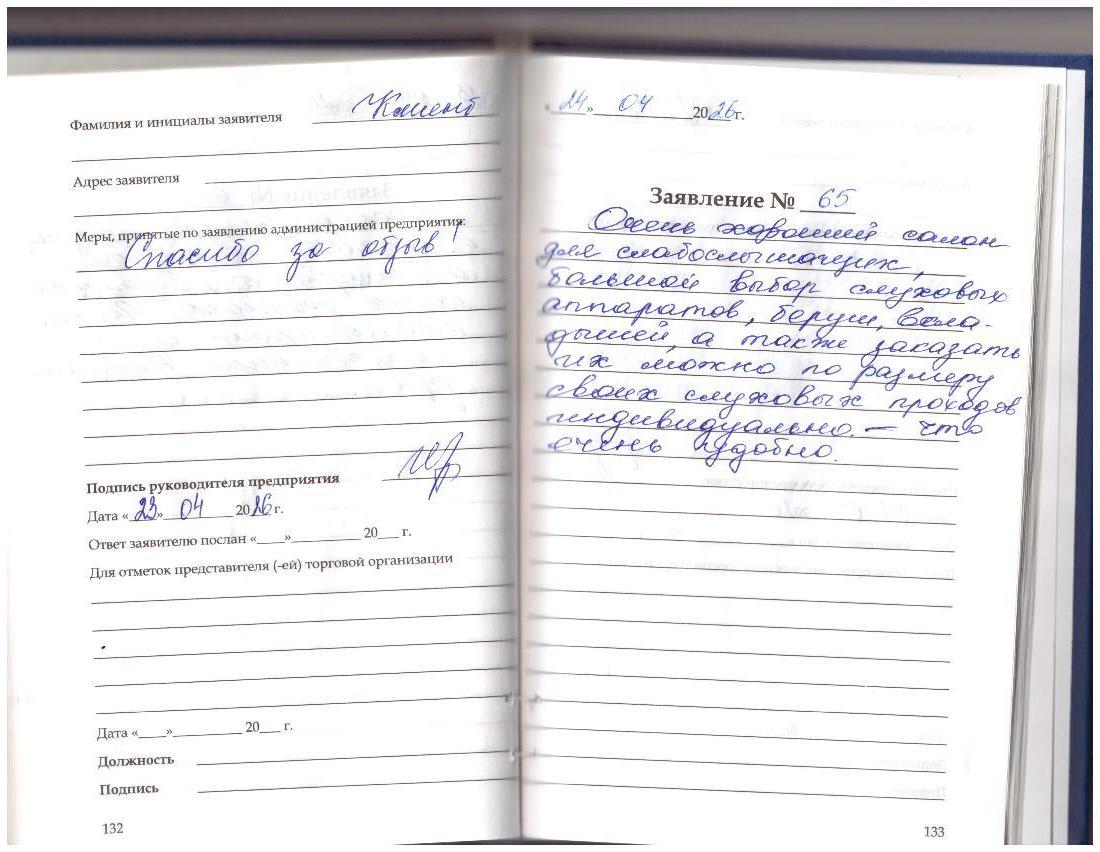 Фамилия и инициалы заявителя Клиент
Адрес заявителя
Меры, принятые по заявлению администрацией предприятия:
Спасибо за отзыв!
Подпись руководителя предприятия
Дата «23» 04 2026 г.
Ответ заявителю послан «____»__________ 20___ г.
Для отметок представителя (-ей) торговой организации
Дата «____»__________ 20___ г.
Должность
Подпись
132
«24» 04 2026 г.
Заявление № 65
Очень хороший салон
для слабослышащих,
большой выбор слуховых
аппаратов, беруш, вкла-
дышей, а также заказать
их можно по размеру
своих слуховых проходов
индивидуально. – что
очень удобно.
133